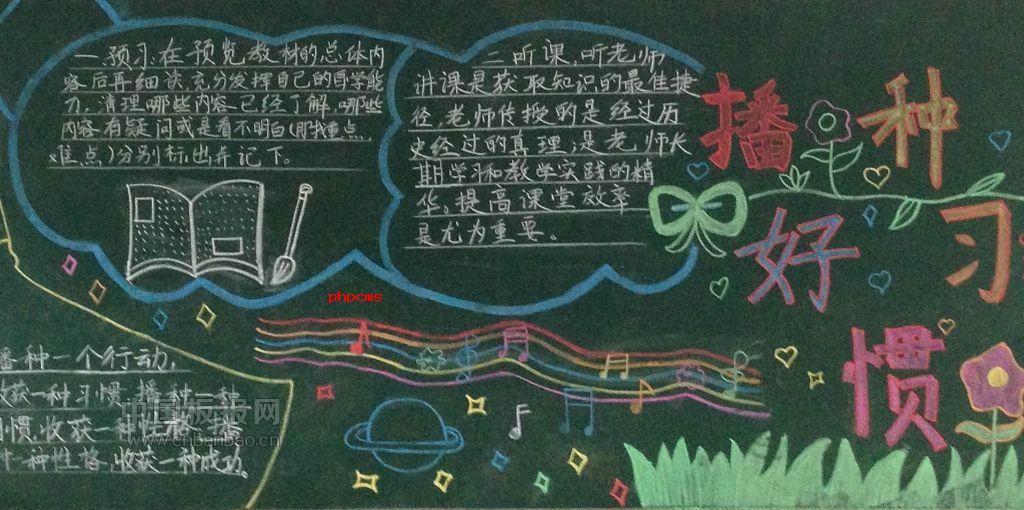 一、预习、在预览教材的总体内
容后再细读,充分发挥自己的自学能
力。清理哪些内容已经了解,哪些
内容有疑问或是看不明白(即找重点、
难点)分别标出并记下。
二、听课、听老师
讲课是获取知识的最佳捷
径,老师传授的是经过历
史经过的真理,是老师长
期学习和教学实践的精
华,提高课堂效率
是尤为重要。
播种
好习
惯
phpcms
播种一个行动,
收获一种习惯,播种一种
习惯,收获一种性格,播
种一种性格,收获一种成功。
中国板报网
www.cnbanbao.cn